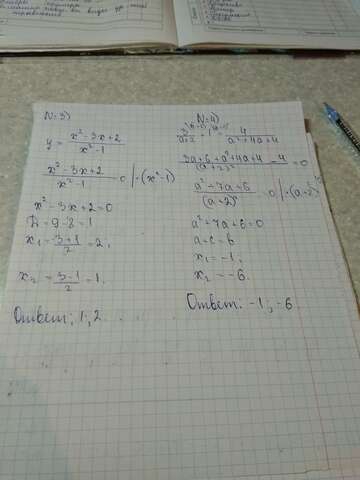 N=3)
y = x² - 3x + 2 / x² - 1
x² - 3x + 2 / x² - 1 = 0 | · (x² - 1)
x² - 3x + 2 = 0
D = 9 - 8 = 1
x₁ = 3 + 1 / 2 = 2;
x₂ = 3 - 1 / 2 = 1.
Ответ: 1; 2
N=4)
3 / a+2 + 1 = 4 / a² + 4a + 4
3a + 6 + a² + 4a + 4 - 4 / (a+2)² = 0
a² + 7a + 6 / (a+2)² = 0 | · (a+2)²
a² + 7a + 6 = 0
a + c = b
x₁ = -1;
x₂ = -6.
Ответ: -1; -6.